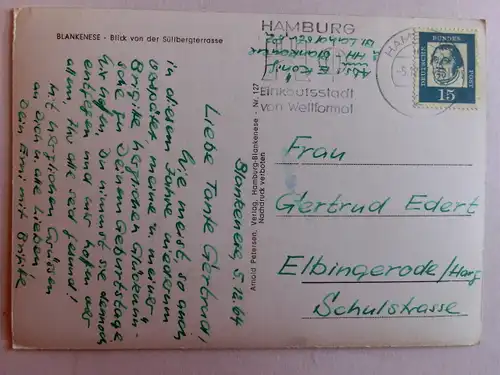 BLANKENESE - Blick von der Süllbergterrasse
Blankenese, 5.12.64
Liebe Tante Gertrud,
Wie meist, so auch
in diesem Jahre wiederum
etwas später, meine u. meiner
Brigitte herzlichen Glückwün-
sche zu Deinem Geburtstage.
Wir hoffen, Du nimmst sie dennoch
entgegen und wir hoffen, daß
allen, Ihr alle seid gesund!
Mit herzlichen Grüssen
an Dich u. alle Lieben
Dein Erni mit Brigitte
Arnold Petersen, Verlag, Hamburg-Blankenese - Nr. 127
Nachdruck verboten
HAMBURG
Einkaufsstadt
von Weltformat
HAM
Abs. E. König
HH Blankenese
DEUTSCHE BUNDESPOST
15
Frau
Gertrud Edert
Elbingerode/Harz
Schulstrasse